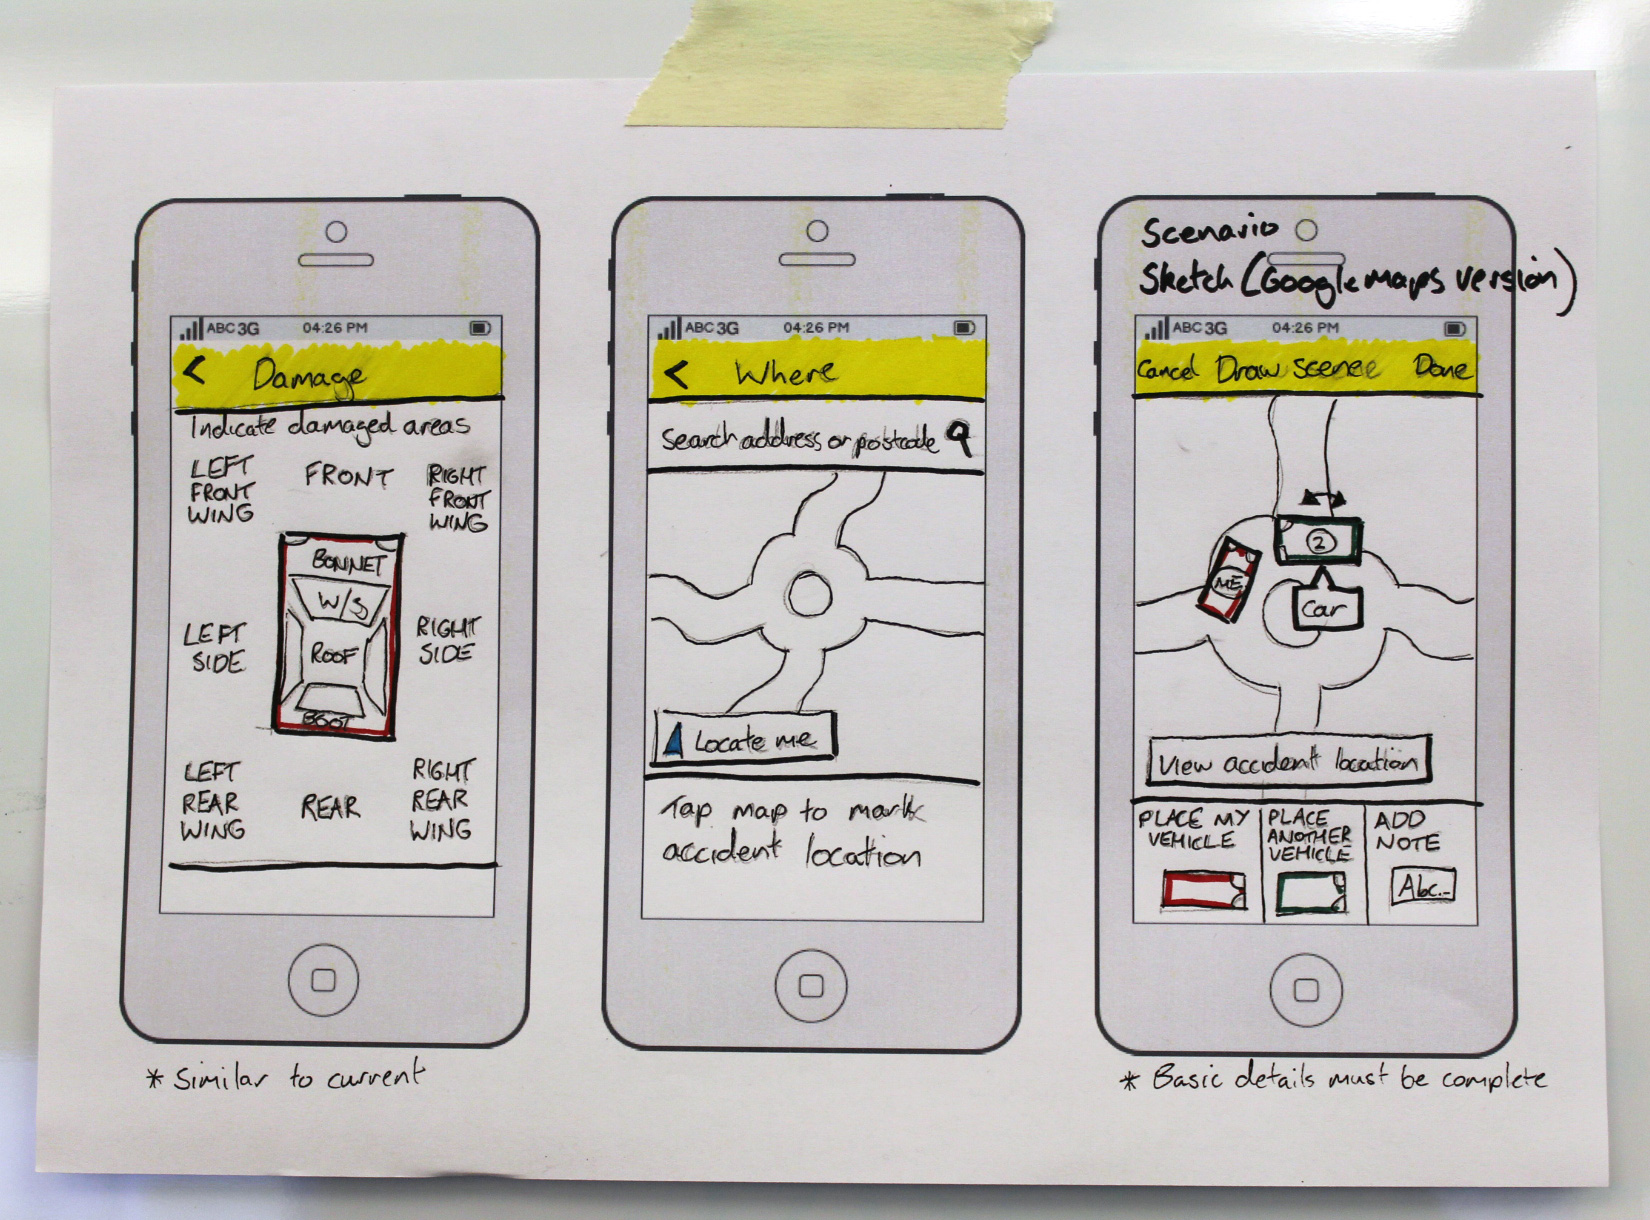 ABC 3G 04:26 PM
< Damage
Indicate damaged areas
LEFT
FRONT
WING
FRONT
RIGHT
FRONT
WING
BONNET
W/S
LEFT
SIDE
ROOF
RIGHT
SIDE
BOOT
LEFT
REAR
WING
REAR
RIGHT
REAR
WING
* Similar to current
ABC 3G 04:26 PM
< Where
Search address or postcode
Locate me
Tap map to mark
accident location
Scenario
Sketch (Google maps version)
ABC 3G 04:26 PM
Cancel Draw scene Done
2
ME
Car
View accident location
PLACE MY
VEHICLE
PLACE
ANOTHER
VEHICLE
ADD
NOTE
Abc..
* Basic details must be complete